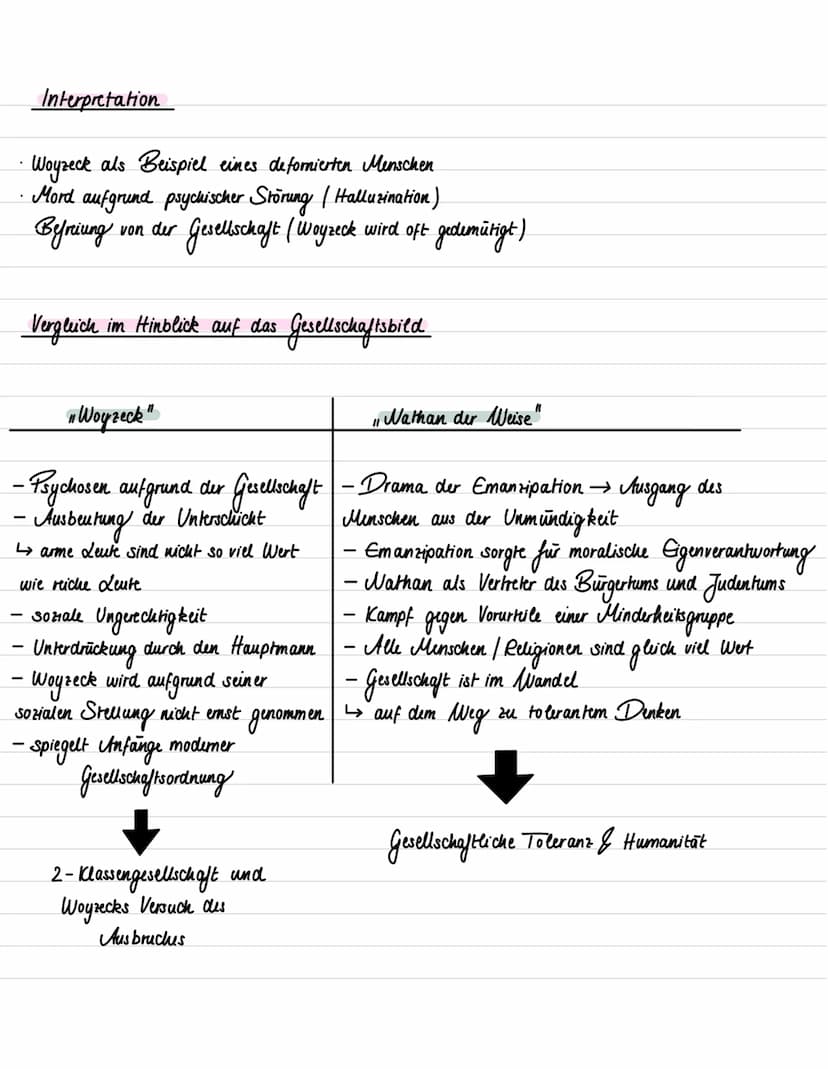 Interpretation
· Woyzeck als Beispiel eines deformierten Menschen
· Mord aufgrund psychischer Störung (Halluzination)
Befreiung von der Gesellschaft (Woyzeck wird oft gedemütigt)
Vergleich im Hinblick auf das Gesellschaftsbild
„Woyzeck"
- Psychosen aufgrund der Gesellschaft
- Ausbeutung der Unterschicht
↳ arme Leute sind nicht so viel Wert
wie reiche Leute
- soziale Ungerechtigkeit
- Unterdrückung durch den Hauptmann
- Woyzeck wird aufgrund seiner
sozialen Stellung nicht ernst genommen
- spiegelt Anfänge moderner
Gesellschaftsordnung
2-Klassengesellschaft und
Woyzecks Versuch des
Ausbruches
„Nathan der Weise"
- Drama der Emanzipation → Ausgang des
Menschen aus der Unmündigkeit
- Emanzipation sorgte für moralische Eigenverantwortung
- Nathan als Vertreter des Bürgertums und Judentums
- Kampf gegen Vorurteile einer Minderheitsgruppe
- Alle Menschen / Religionen sind gleich viel Wert
- Gesellschaft ist im Wandel
↳ auf dem Weg zu tolerantem Denken
Gesellschaftliche Toleranz & Humanität